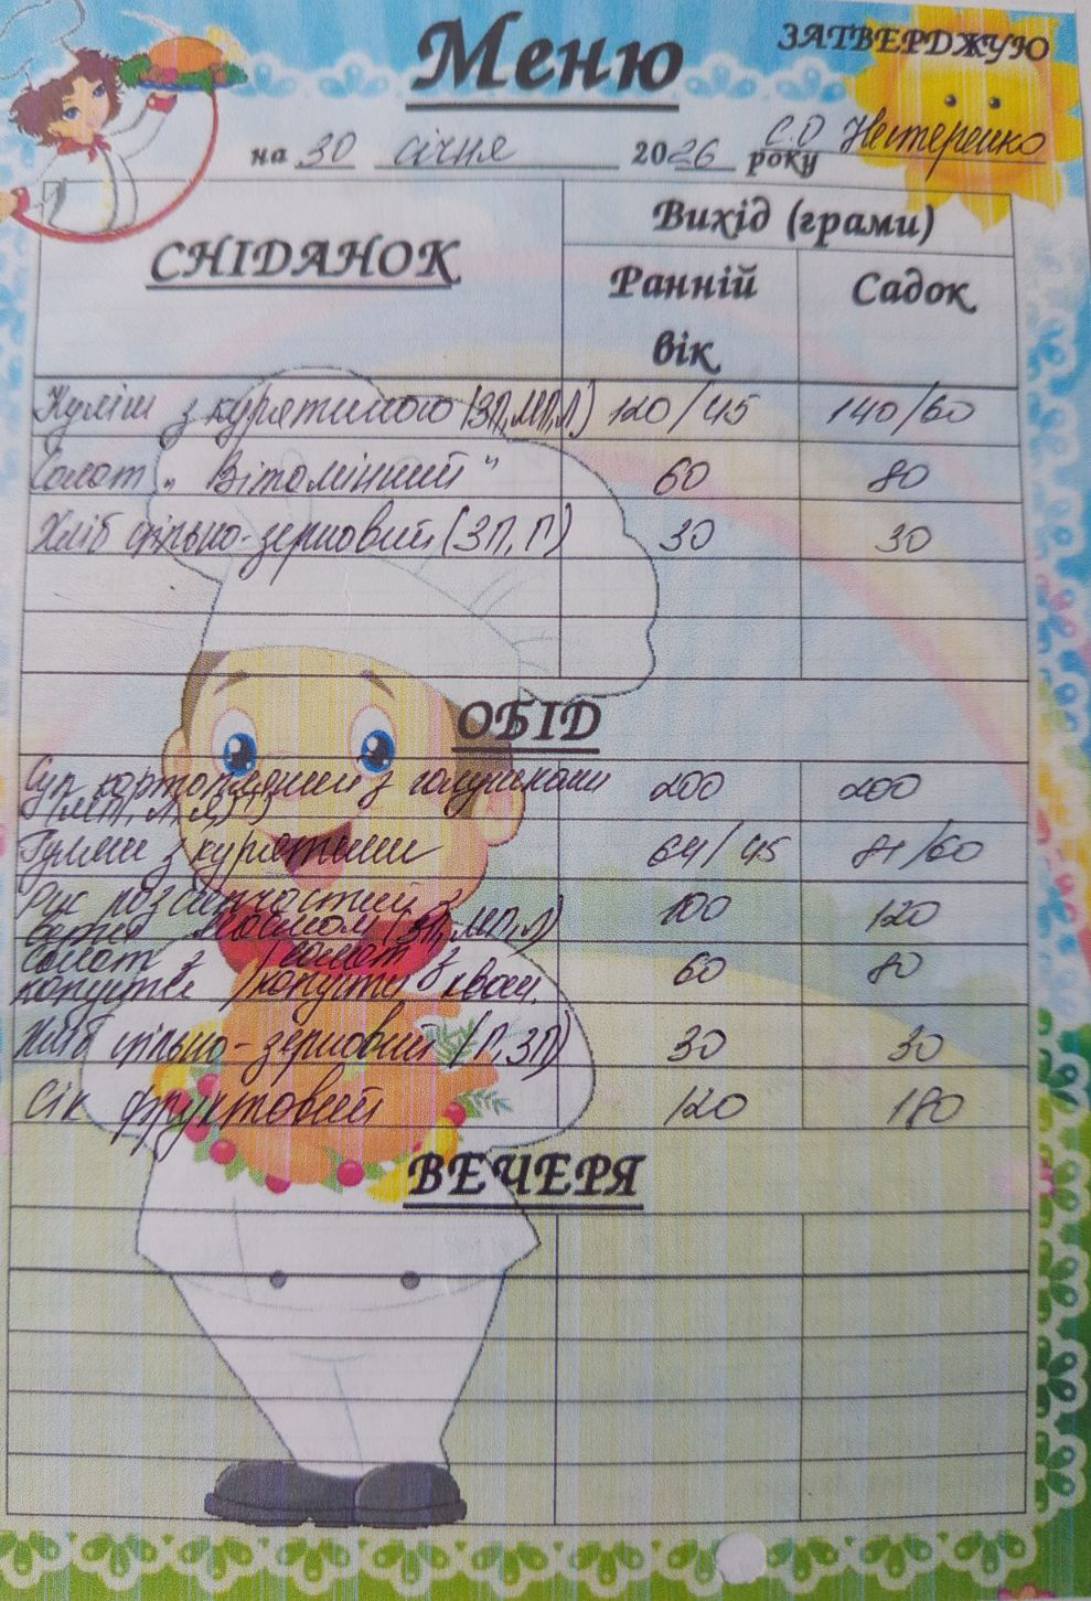 Меню
ЗАТВЕРДЖУЮ
С.О Нестеренко
на 30 січня 2026 року
СНІДАНОК
Вихід (грами)
Ранній вік
Садок
Куліш з курятиною (ЗП, МП, Л) 120/45 140/60
Салат „Вітамінний" 60 80
Хліб цільно-зерновий (ЗП, Г) 30 30
ОБІД
Суп картопляний з галушками 200 200
Гуляш з курятини 64/45 81/60
Рис розсипчастий з 100 120
верш маслом (ЗП, МП, Л)
салат з / салат з 60 80
капусти / капусти квош.
Хліб цільно-зерновий (Г, ЗП) 30 30
Сік фруктовий 120 180
ВЕЧЕРЯ